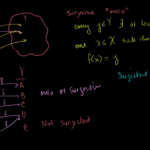 Surjective "onto"
every y∈Y ∃ at lea
one x∈X such
f(x) = y
Surjective
Y
A
B
C
D
E
onto or Surjective
Not surjective